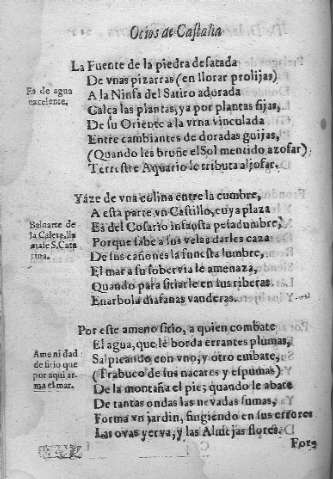 Ocios de Castalia
La Fuente de la piedra desatada
De vnas pizarras (en llorar prolijas)
Es de agua
excelente.
A la Ninfa del Satiro adorada
Calça las plantas, ya por plantas fijas,
De su Oriente a la vrna vinculada
Entre cambiantes de doradas guijas,
(Quando les bruñe el Sol mentido azofar)
Terrestre Aquario le tributa aljofar.
Yaze de vna colina entre la cumbre,
A esta parte vn Castillo, cuya plaza
Es del Cosario infausta pesadumbre,
Baluarte de
la Caleta, lla
mase S. Cata
rina.
Porque sabe a sus velas darles caza
De sus cañones la funesta lumbre,
El mar a su sobervia le amenaza,
Quando para sitiarle en sus riberas
Enarbola diafanas vanderas.
Por este ameno sitio, a quien combate
El agua, que le borda errantes plumas,
Amenidad
de sitio que
por aqui ar
ma el mar.
Salpicando con vno, y otro embate,
(Trabuco de sus nacares y espumas)
De la montaña el pie; quando le abate
De tantas ondas las nevadas sumas,
Forma vn jardin, fingiendo en sus errores
Las ovas yerva, y las Almejas flores.